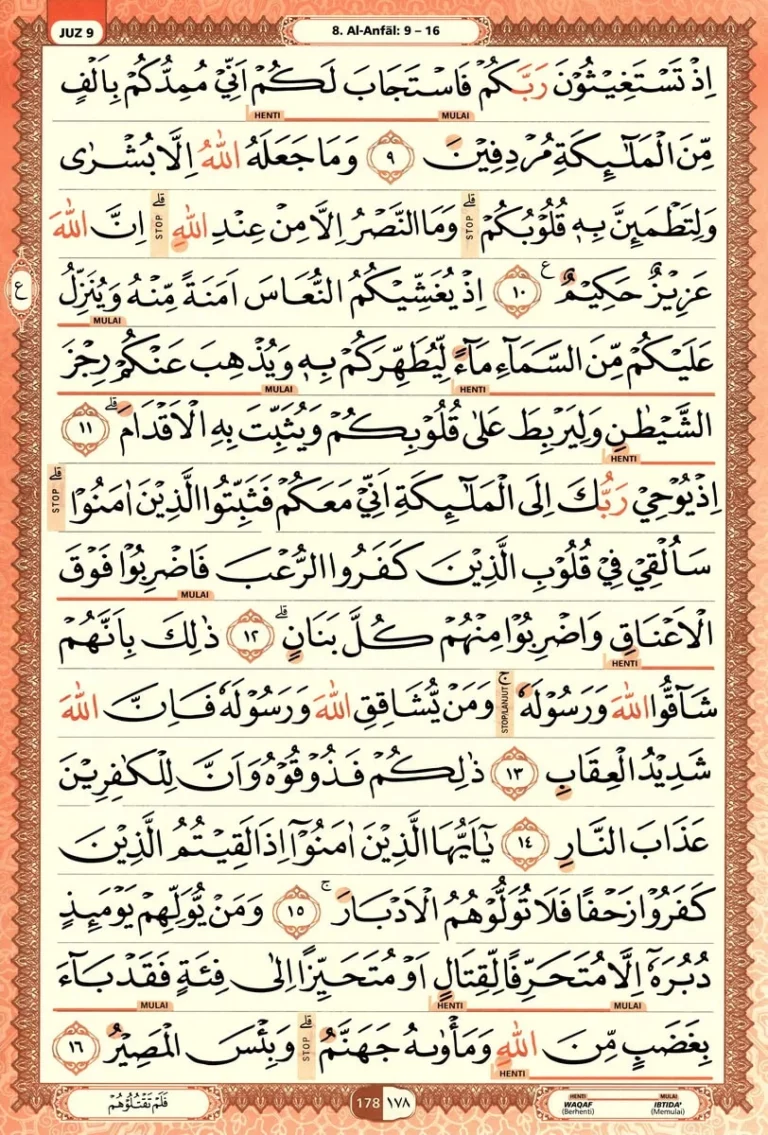 JUZ 9
8. Al-Anfāl: 9 – 16
اِذْ تَسْتَغِيْثُوْنَ رَبَّكُمْ فَاسْتَجَابَ لَكُمْ اَنِّيْ مُمِدُّكُمْ بِاَلْفٍ
MULAI HENTI
مِّنَ الْمَلٰۤىِٕكَةِ مُرْدِفِيْنَ ٩ وَمَا جَعَلَهُ اللّٰهُ اِلَّا بُشْرٰى
وَلِتَطْمَىِٕنَّ بِهٖ قُلُوْبُكُمْ ۗ STOP وَمَا النَّصْرُ اِلَّا مِنْ عِنْدِ اللّٰهِ ۗ STOP اِنَّ اللّٰهَ
ع
عَزِيْزٌ حَكِيْمٌ ࣖ ١٠ اِذْ يُغَشِّيْكُمُ النُّعَاسَ اَمَنَةً مِّنْهُ وَيُنَزِّلُ
MULAI
عَلَيْكُمْ مِّنَ السَّمَاۤءِ مَاۤءً لِّيُطَهِّرَكُمْ بِهٖ وَيُذْهِبَ عَنْكُمْ رِجْزَ
HENTI MULAI
الشَّيْطٰنِ وَلِيَرْبِطَ عَلٰى قُلُوْبِكُمْ وَيُثَبِّتَ بِهِ الْاَقْدَامَ ۗ ١١
HENTI
اِذْ يُوْحِيْ رَبُّكَ اِلَى الْمَلٰۤىِٕكَةِ اَنِّيْ مَعَكُمْ فَثَبِّتُوا الَّذِيْنَ اٰمَنُوْا ۗ STOP
سَاُلْقِيْ فِيْ قُلُوْبِ الَّذِيْنَ كَفَرُوا الرُّعْبَ فَاضْرِبُوْا فَوْقَ
MULAI
الْاَعْنَاقِ وَاضْرِبُوْا مِنْهُمْ كُلَّ بَنَانٍ ۗ ١٢ ذٰلِكَ بِاَنَّهُمْ
HENTI
شَاۤقُّوا اللّٰهَ وَرَسُوْلَهٗ ۚ STOP/LANJUT وَمَنْ يُّشَاقِقِ اللّٰهَ وَرَسُوْلَهٗ فَاِنَّ اللّٰهَ
شَدِيْدُ الْعِقَابِ ١٣ ذٰلِكُمْ فَذُوْقُوْهُ وَاَنَّ لِلْكٰفِرِيْنَ
عَذَابَ النَّارِ ١٤ يٰٓاَيُّهَا الَّذِيْنَ اٰمَنُوْٓا اِذَا لَقِيْتُمُ الَّذِيْنَ
كَفَرُوْا زَحْفًا فَلَا تُوَلُّوْهُمُ الْاَدْبَارَ ۚ ١٥ وَمَنْ يُّوَلِّهِمْ يَوْمَىِٕذٍ
دُبُرَهٗٓ اِلَّا مُتَحَرِّفًا لِّقِتَالٍ اَوْ مُتَحَيِّزًا اِلٰى فِئَةٍ فَقَدْ بَاۤءَ
MULAI HENTI MULAI
بِغَضَبٍ مِّنَ اللّٰهِ وَمَأْوٰىهُ جَهَنَّمُ ۗ STOP وَبِئْسَ الْمَصِيْرُ ١٦
HENTI
فَلَمْ تَقْتُلُوْهُمْ
178 ١٧٨
HENTI MULAI
WAQAF IBTIDA'
(Berhenti) (Memulai)